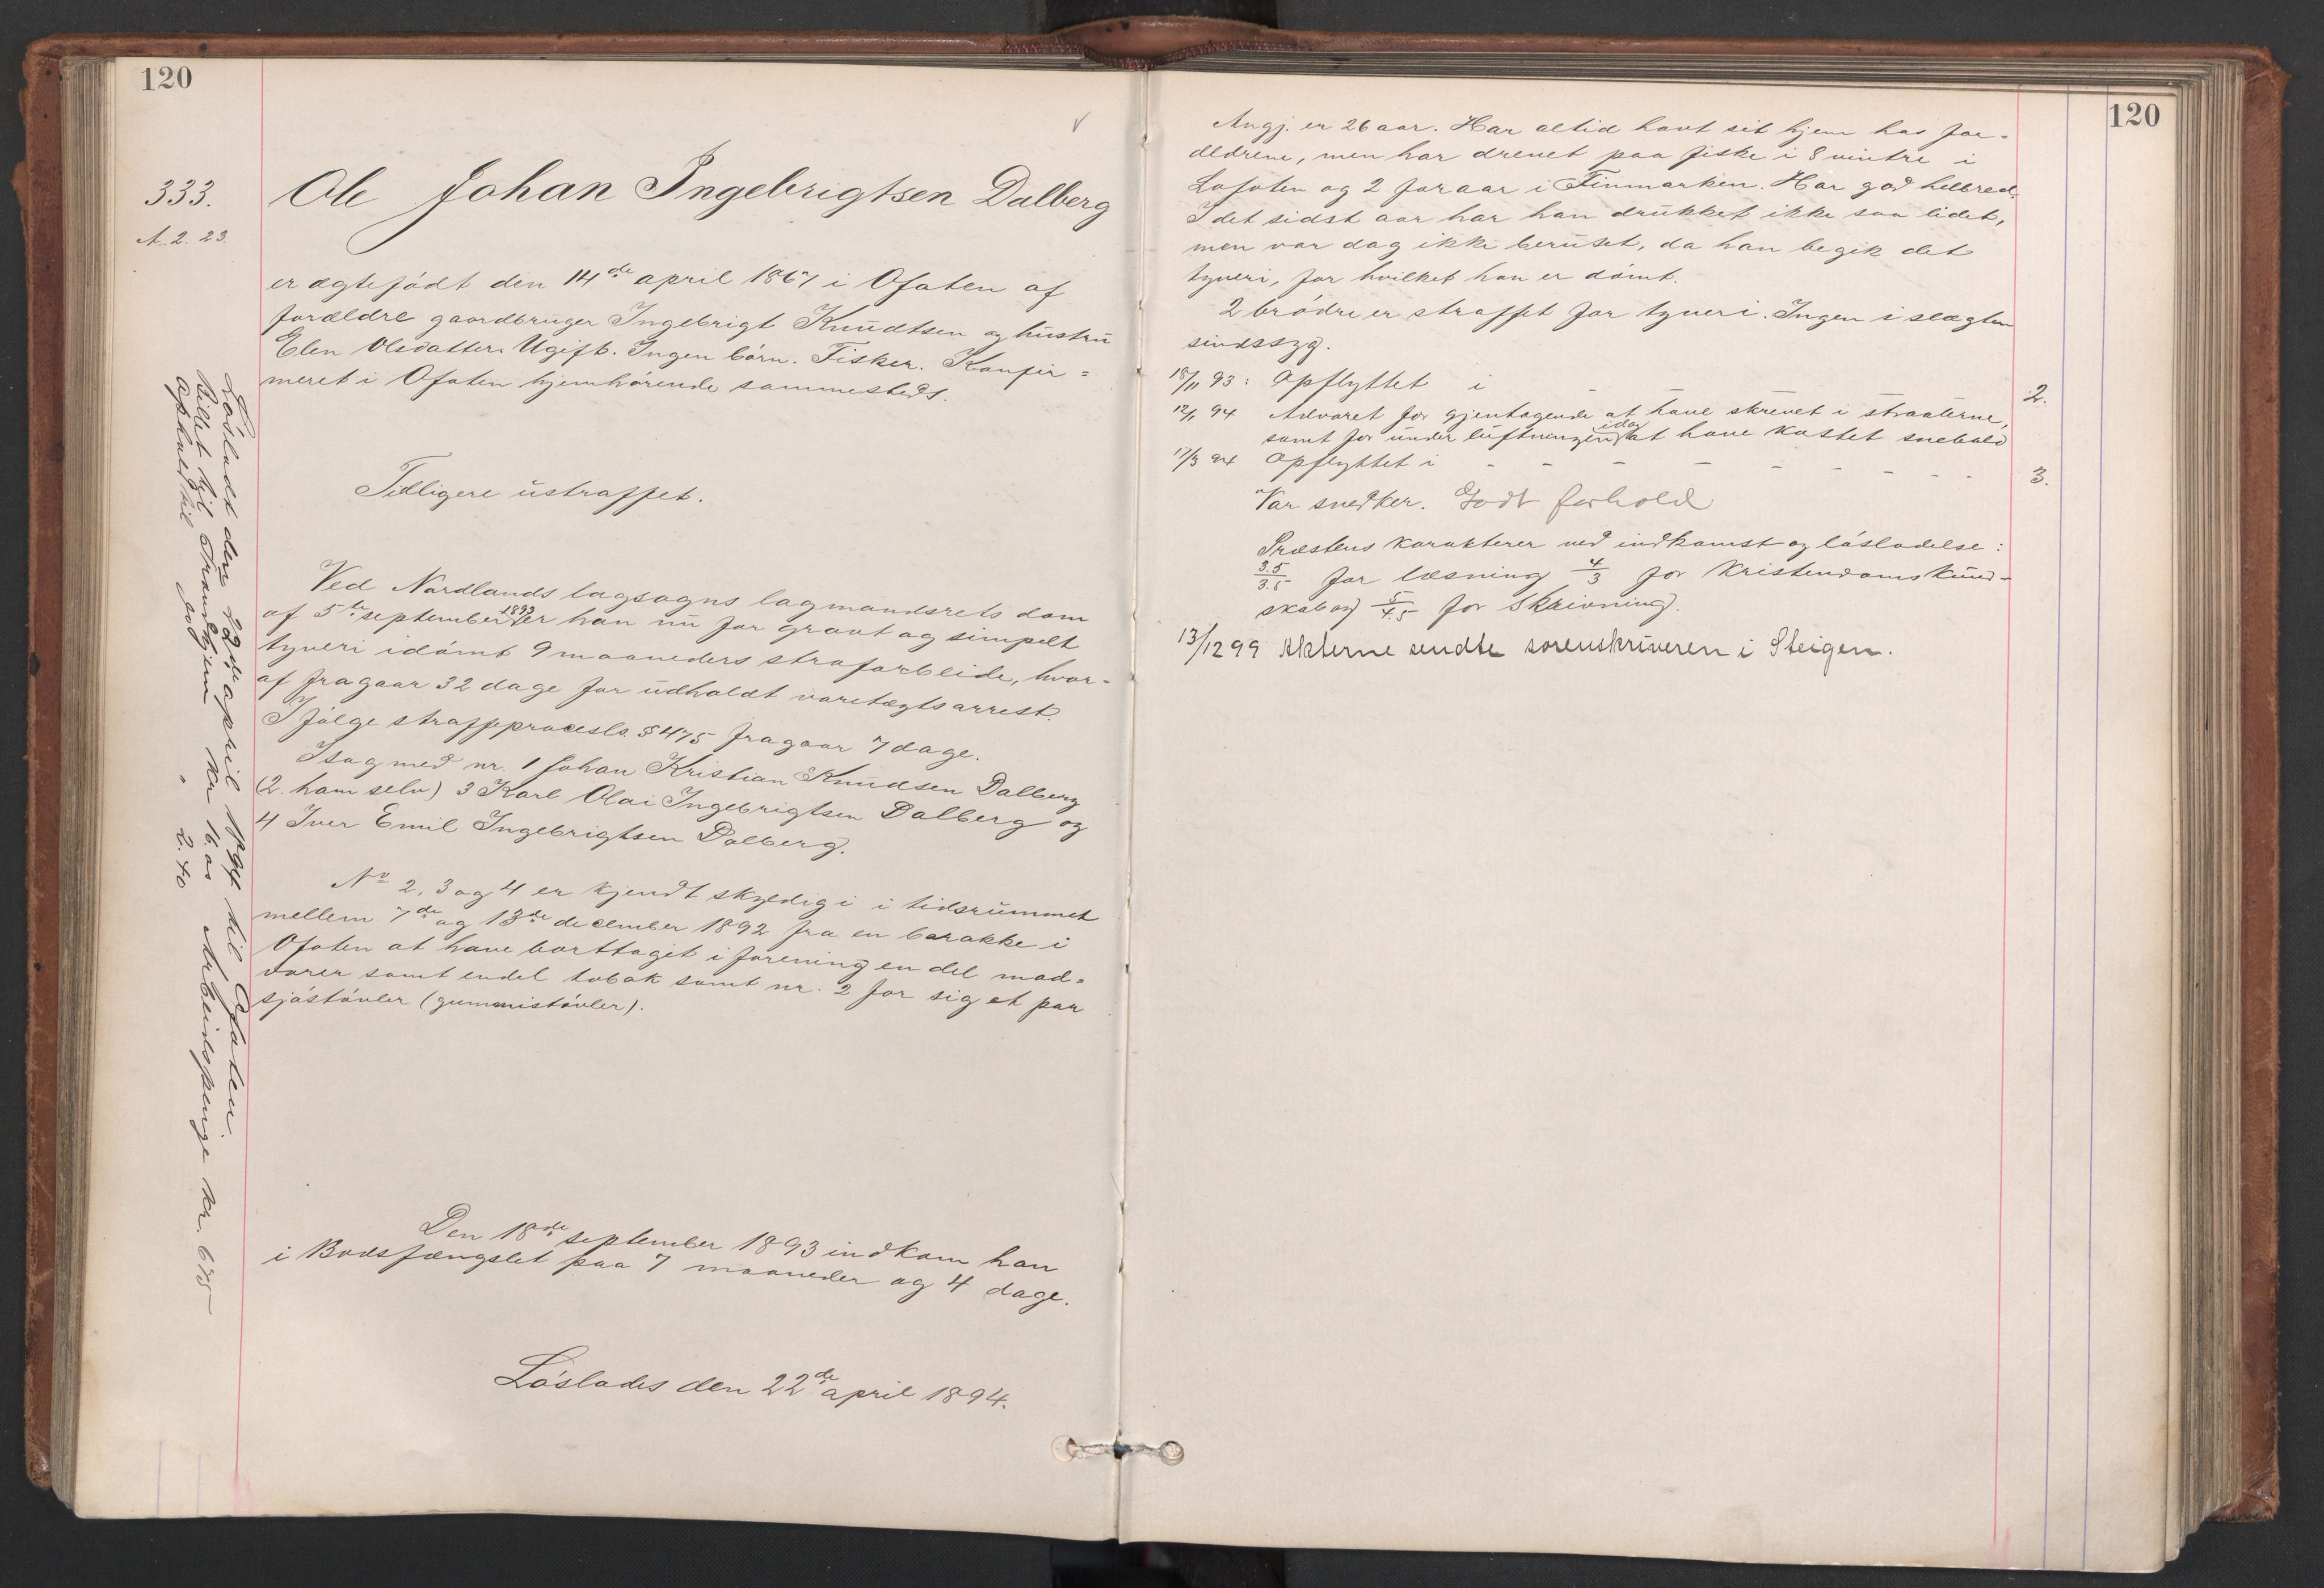 120
333.
A. 2. 23.
Ole Johan Ingebrigtsen Dalberg
er ægtefødt den 14de april 1867 i Ofoten af
forældre gaardbruger Ingebrigt Knudtsen og hustru
Elen Olsdatter. Ugift. Ingen børn. Fisker. Konfir=
meret i Ofoten hjemhørende sammesteds.
Tidligere ustraffet.
Ved Nordlands lagsogns lagmandsrets dom
af 5te september 1893 er han nu for grovt og simpelt
tyveri idømt 9 maaneders strafarbeide, hvor=
af fragaar 32 dage for udholdt varetægtsarrest.
I følge straffeprocesls. § 475 fragaar 7 dage.
I sag med nr. 1 Johan Kristian Knudsen Dalberg
(2. ham selv) 3 Karl Olai Ingebrigtsen Dalberg og
4 Iver Emil Ingebrigtsen Dalberg.
No 2, 3 og 4 er kjendt skyldig i i tidsrummet
mellem 7de og 13de december 1892 fra en barakke i
Ofoten at have borttaget i forening en del mad=
varer samt endel tobak samt nr. 2 for sig et par
sjøstøvler (gummistøvler).
Den 18de september 1893 indkom han
i Bodsfængslet paa 7 maaneder og 4 dage.
Løslades den 22de april 1894.
Løsladt den 22de april 1894 til Ofoten.
Billet til Trondhjem Kr 16.05 Arbeidspenge Kr. 6.75
Ophold til " 2.40
120
Angj. er 26 aar. Har altid havt sit hjem hos for=
ældrene, men har drevet paa fiske i 8 vintre i
Lofoten og 2 foraar i Finmarken. Har god helbred.
I det sidst aar har han drukket ikke saa lidet,
men var dog ikke beruset, da han begik det
tyveri, for hvilket han er dømt.
2 brødre er straffet for tyveri. Ingen i slægten
sindssyg.
18/11 93: Opflyttet i - - - 2.
12/1 94 Advaret for gjentagende at have skrevet i straaterne,
samt for under luftningen idag at have kastet snebold
17/3 94 Opflyttet i - - - - - - - - 3.
Var snedker. Godt forhold
Præstens karakterer ved indkomst og løsladelse:
3.5/3.5 for læsning 4/3 for Kristendomskund-
skab og 5/4.5 for Skrivning.
13/12 99 Akterne sendte sorenskriveren i Steigen.